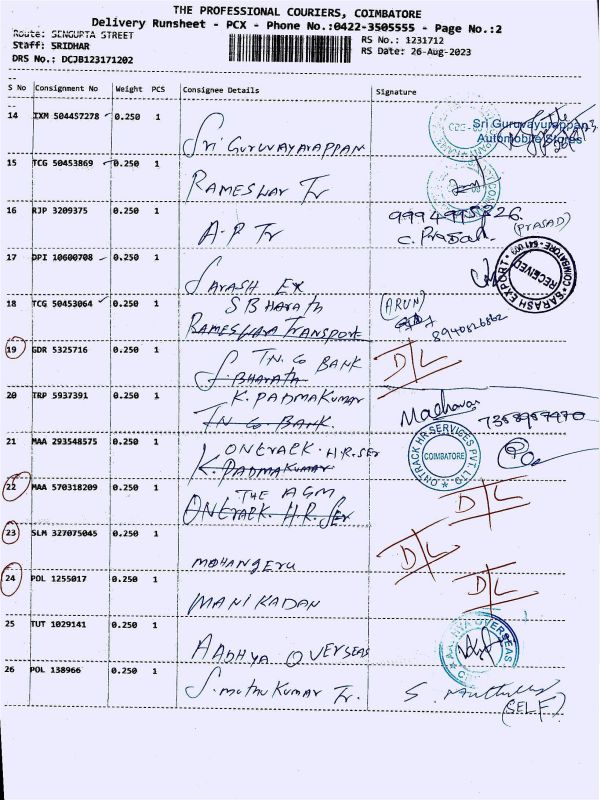 THE PROFESSIONAL COURIERS, COIMBATORE
Delivery Runsheet - PCX - Phone No.:0422-3505555 - Page No.:2
Route: SENGUPTA STREET
RS No.: 1231712
Staff: SRIDHAR
RS Date: 26-Aug-2023
DRS No.: DCJB123171202
S No Consignment No Weight PCS Consignee Details Signature
14 IXM 504457278 0.250 1
Sri Guruvayurappan
Automobile Stores
Sri Guruvayarappan
15 TCG 50453869 0.250 1
Rameshwar Tr
16 RJP 3209375 0.250 1
A-P Tr
C. Prasad.
(PRASAD)
17 DPI 10600708 0.250 1
Sarash Ex
SARASH EXPORT COIMBATORE - 641 009
RECEIVED
18 TCG 50453064 0.250 1
S Bharath
Rameshwara Transport
(ARUN)
19 GDR 5325716 0.250 1
TN. Co Bank
S. Bharath
D/L
20 TRP 5937391 0.250 1
K. Padmakumar
TN Co. Bank.
Madhavan
7358957970
21 MAA 293548575 0.250 1
Ontrack. H.R. Ser
K. Padmakumar
ONTRACK HR SERVICES PVT. LTD.
COIMBATORE
22 MAA 570318209 0.250 1
The AGM
Ontrack. H.R. Ser
D/L
23 SLM 327075045 0.250 1
Mohangeru
D/L
24 POL 1255017 0.250 1
Manikadan
D/L
25 TUT 1029141 0.250 1
Aadhya Overseas
26 POL 138966 0.250 1
S. Muthukumar Tr.
(SELF)